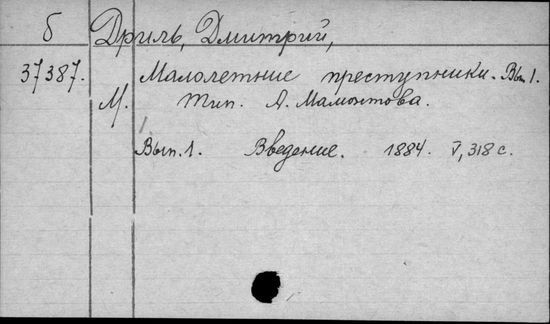 б Дриль, Дмитрий,
37387. Малолетние преступники. Вып. 1.
М. Тип. А. Мамонтова.
Вып. 1. Введение. 1884. V, 318 с.